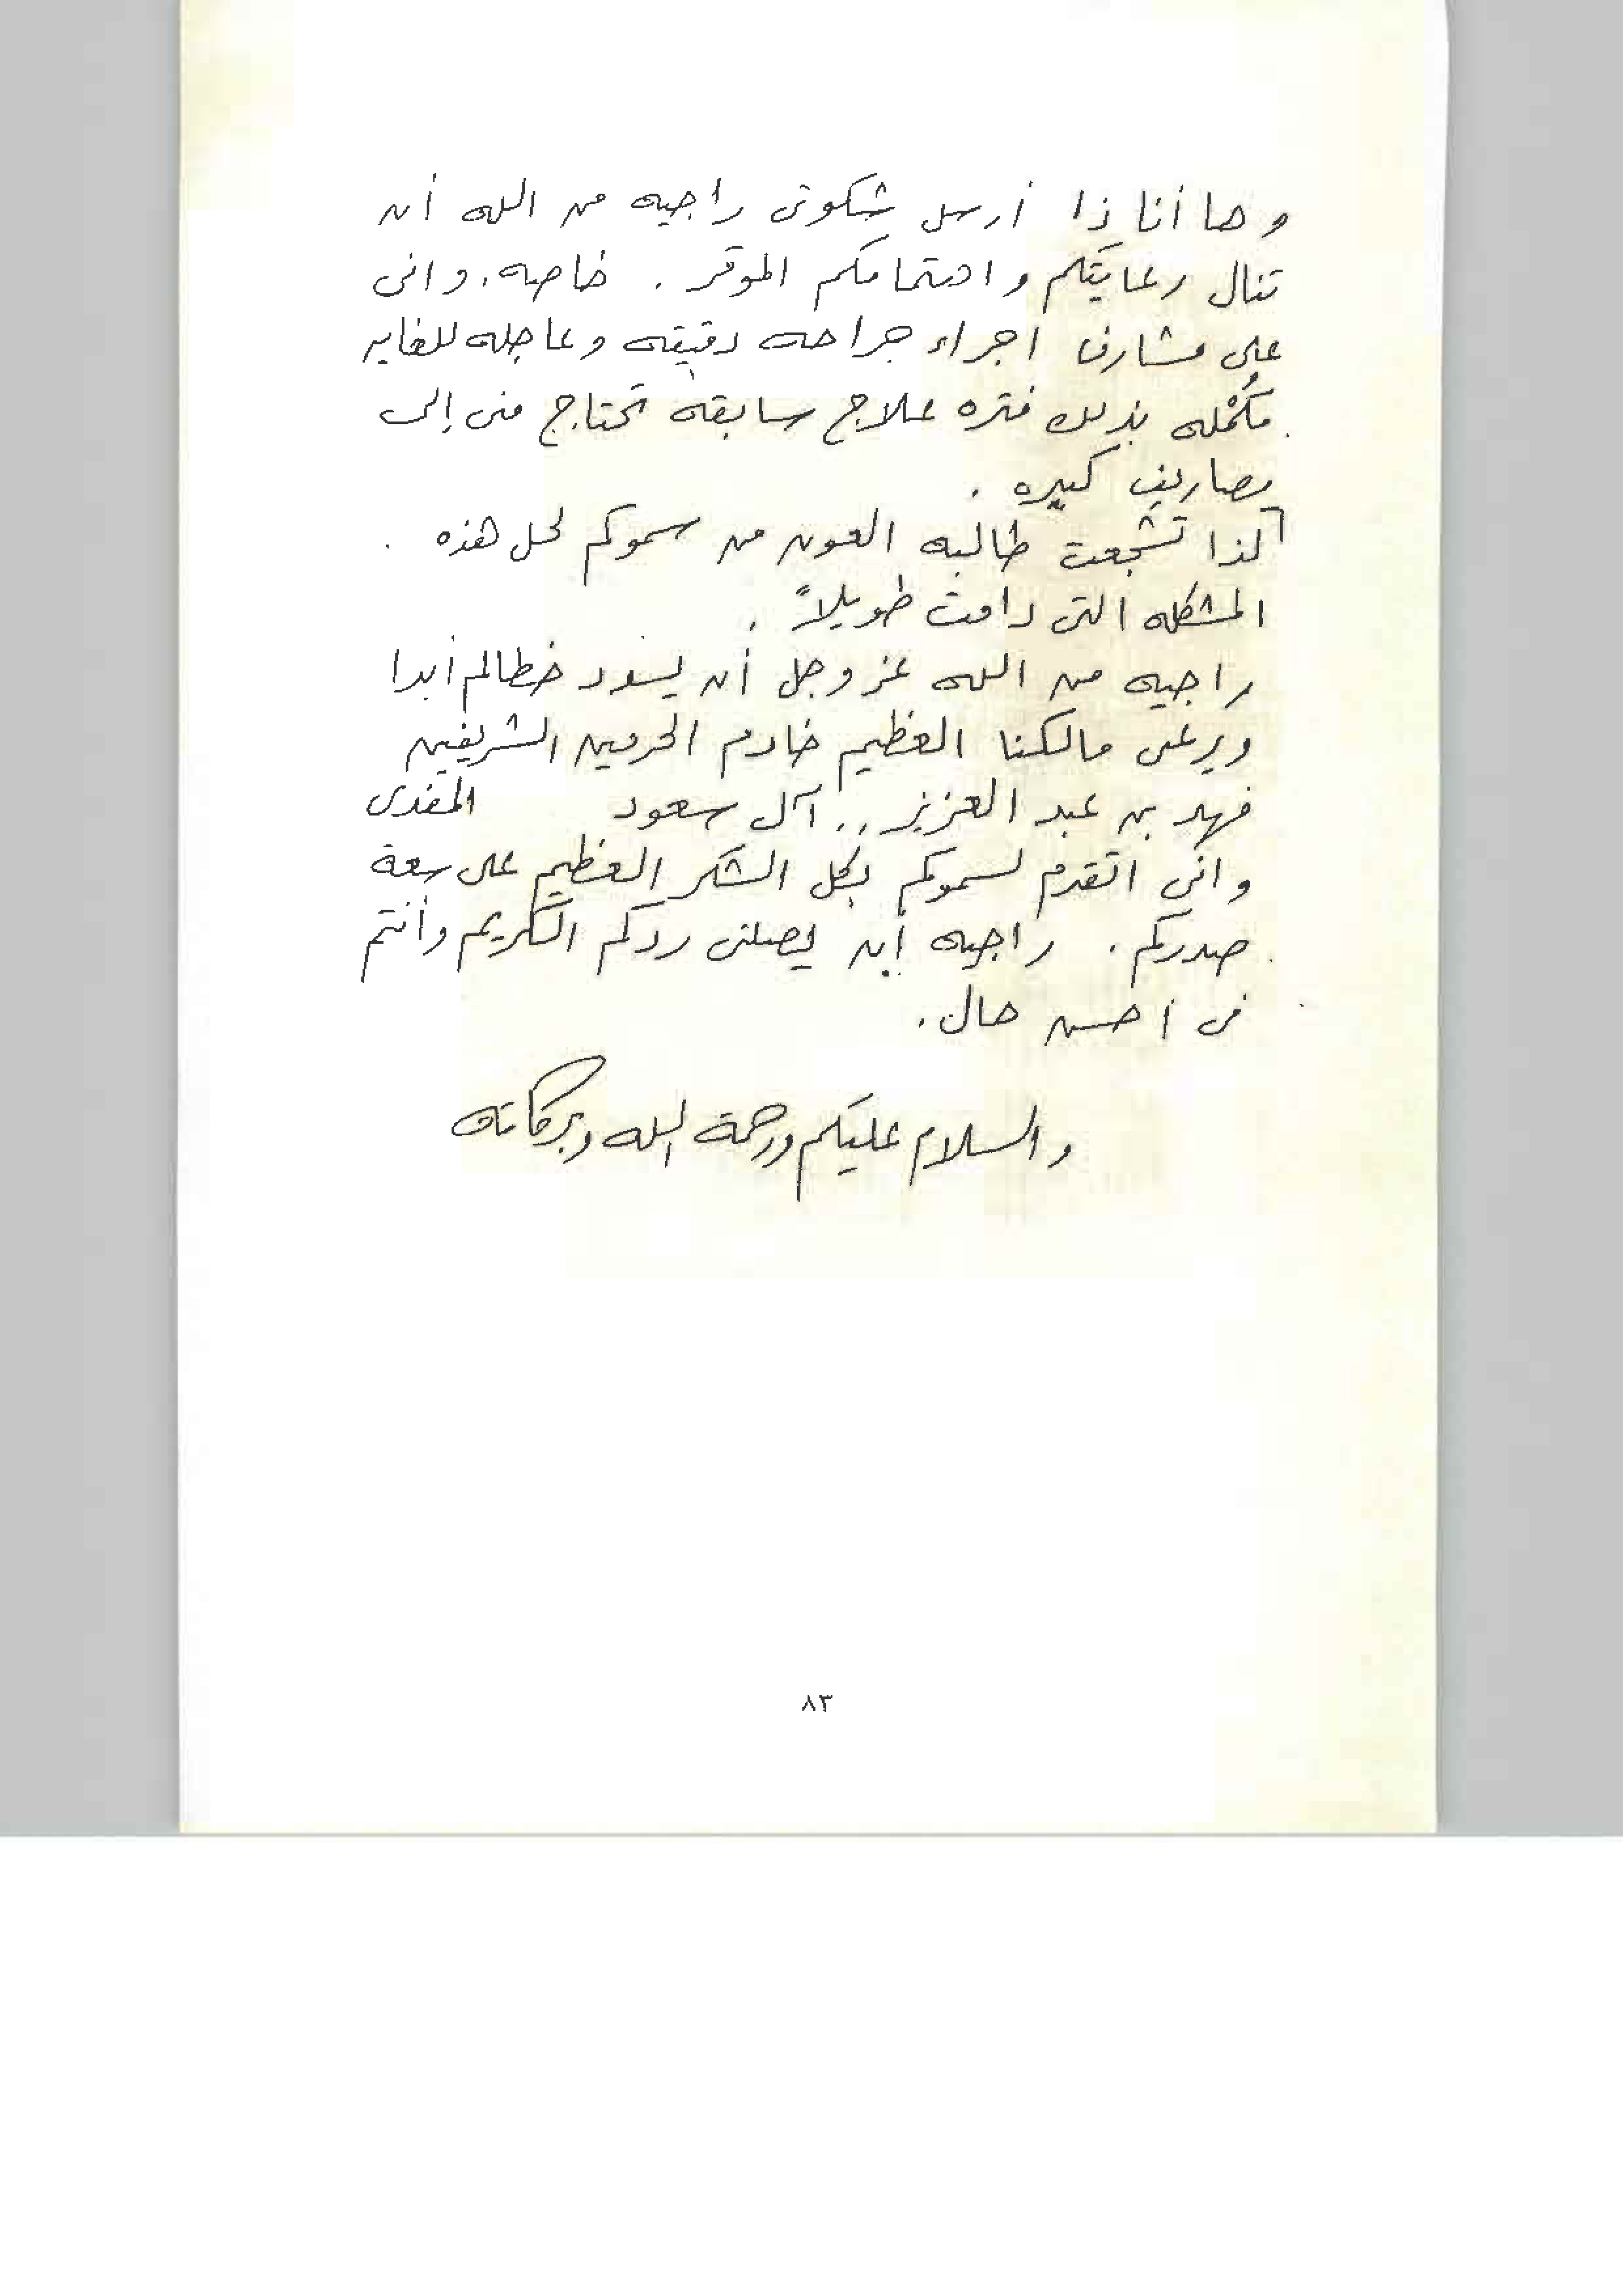 وها أنا ذا أرسل شكوتى راجيه من الله أن
تنال رعايتكم واهتمامكم الموقر . خاصه . وانى
على مشارف اجراء جراحه دقيقه وعاجله للغايه
مكمله بذلك فتره علاج سابقه تحتاج منى إلى
مصاريف كبيره .
لذا تشجعت طالبه العون من سموكم لحل هذه
المشكله التى دامت طويلاً .
راجيه من الله عز وجل أن يسدد خطاكم أبدا
ويرعى مالكنا العظيم خادم الحرمين الشريفين
فهد بن عبد العزيز .. آل سعود المفدى
وانى اتقدم لسموكم بكل الشكر العظيم على سعة
صدركم . راجيه أن يصلنى ردكم الكريم وأنتم
فى أحسن حال .
والسلام عليكم ورحمة الله وبركاته
٨٣